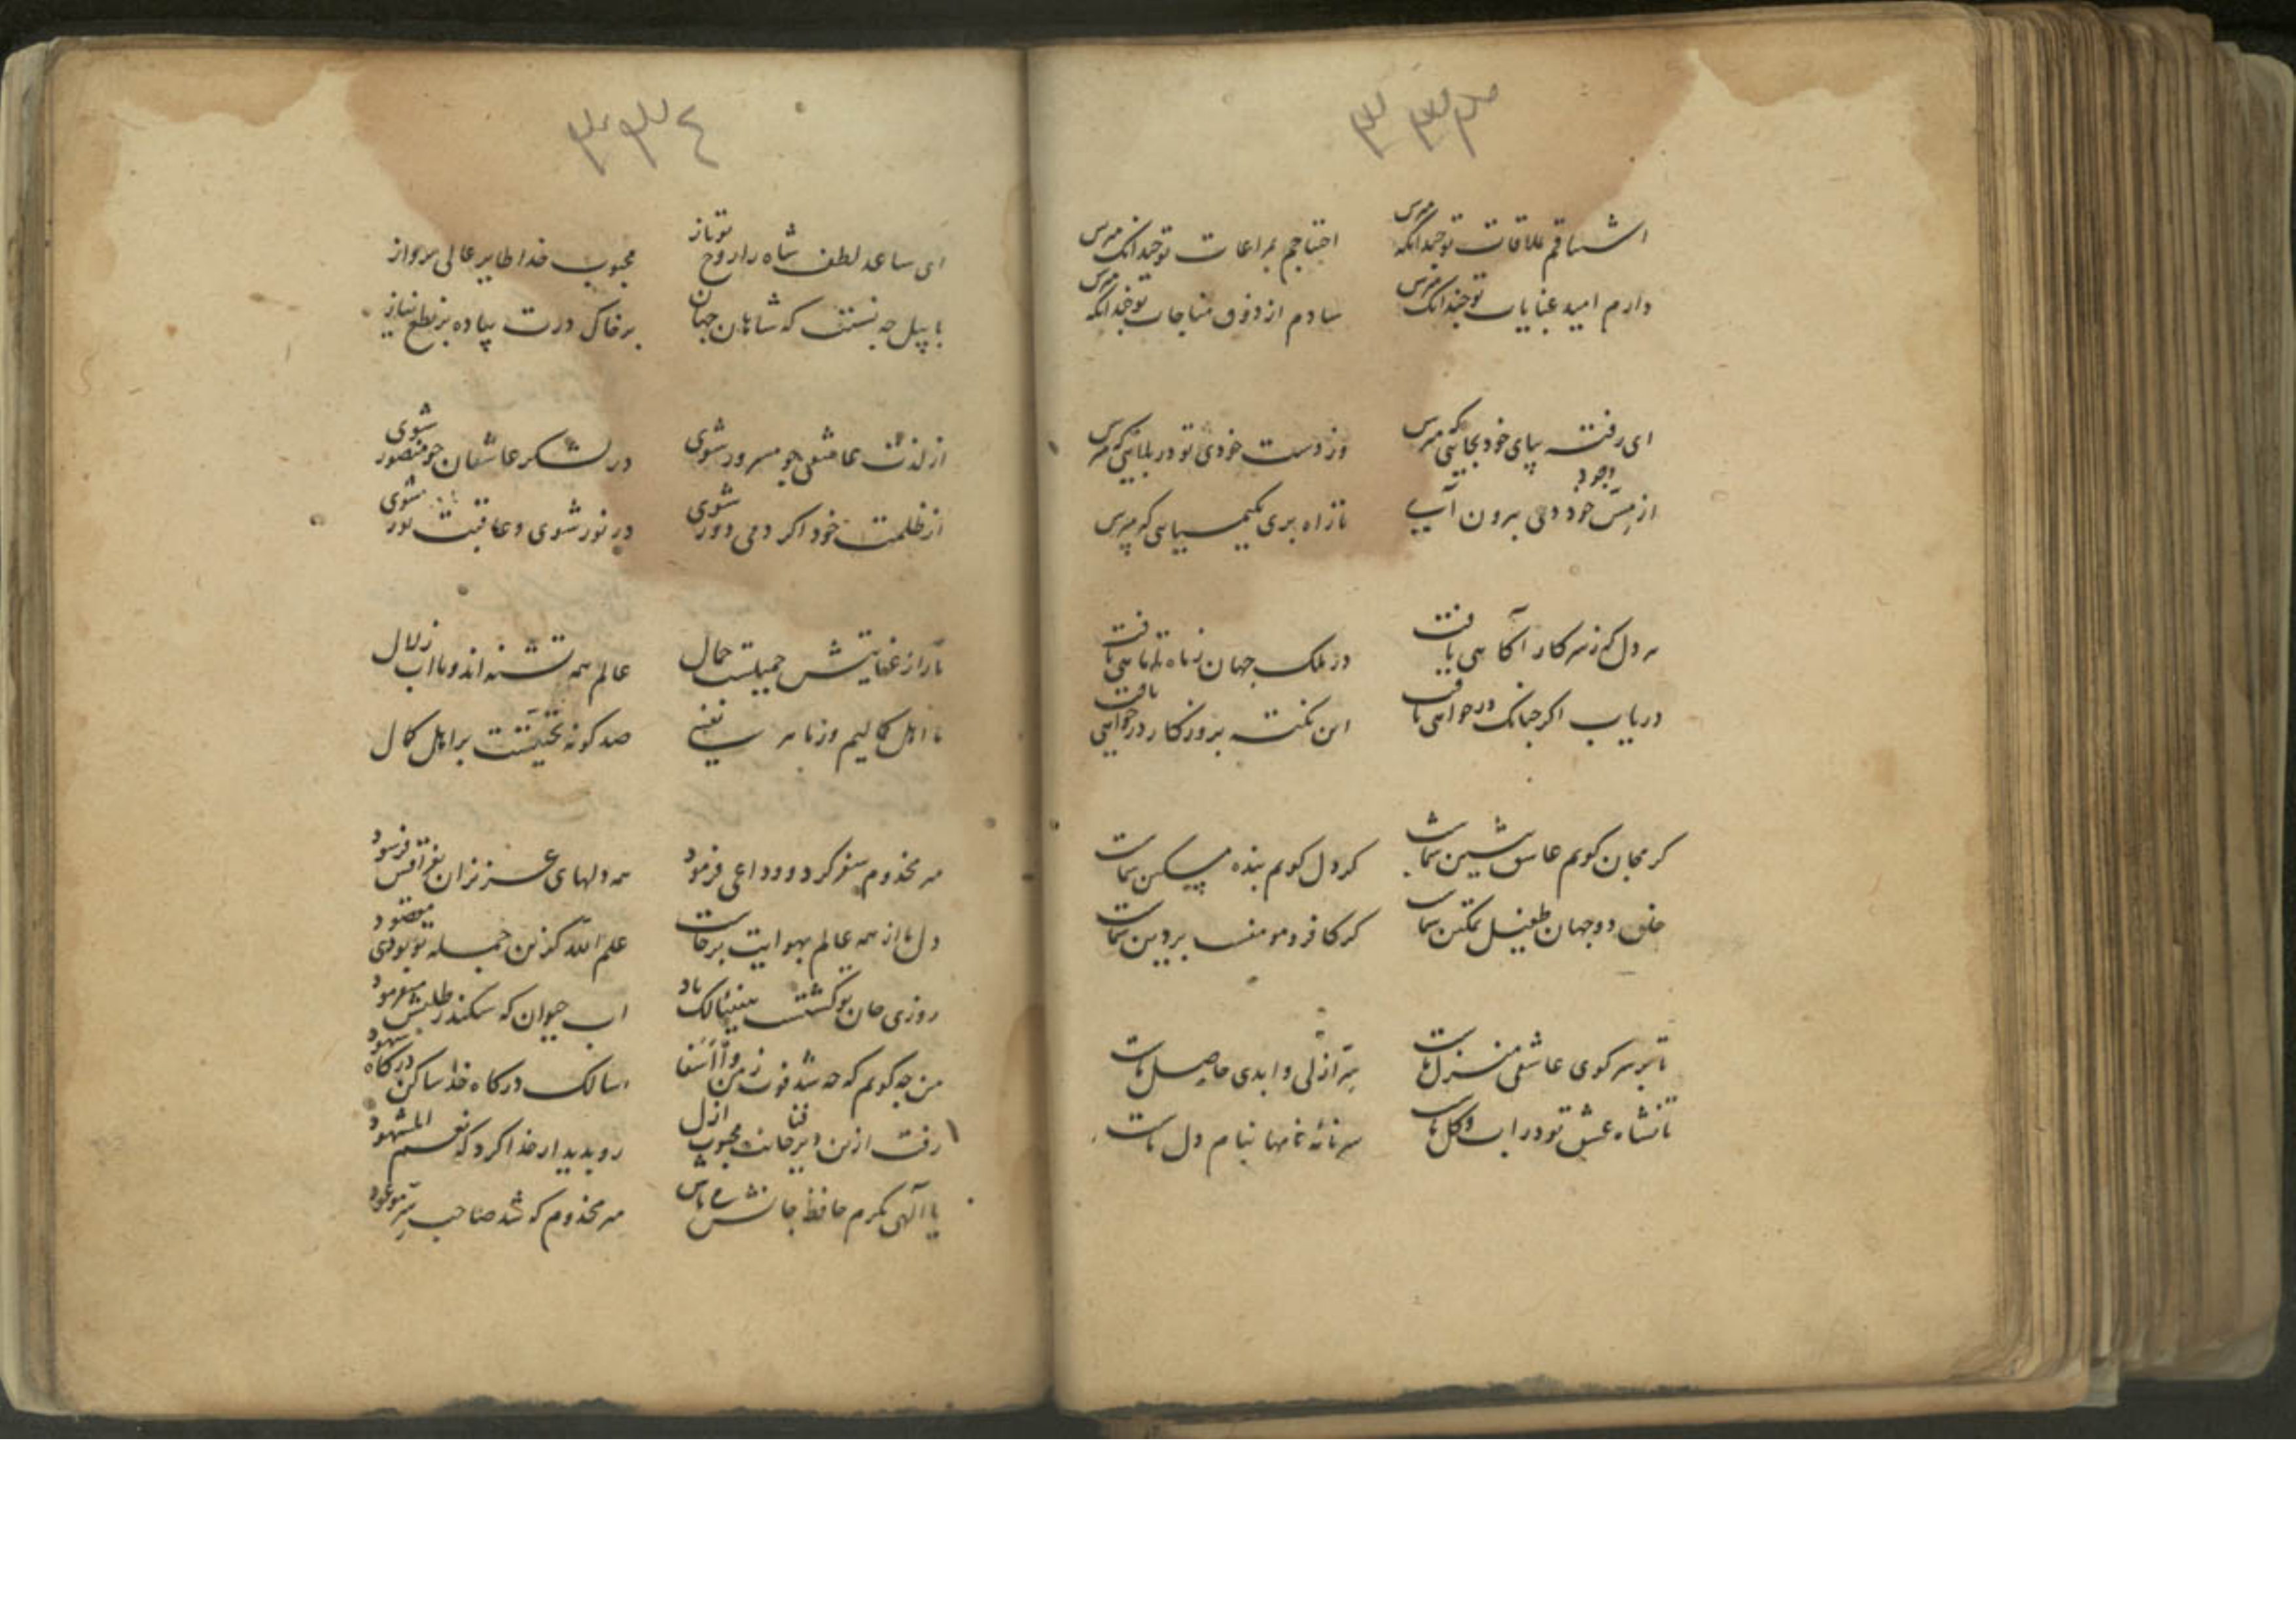 ۳۳۳
اشتیاقم بملاقات تو چندانکه مپرس احتیاجم بمراعات تو چندانک مپرس
دارم امید عنایات تو چندانک مپرس شادم از ذوق مناجات تو چندانکه مپرس
ای رفته بپای خود بجایی که مپرس وز دست خودی تو در بلایی که مپرس
از مس وجود خود دمی برون آیی تا راه بری بکیمیایی که مپرس
هر دل که ز سر کار آکاهی یافت در ملک جهان ز ماه تا ماهی یافت
دریاب اکر چنانک در خواهی یافت این نکته بروزکار در خواهی یافت
کر بجان کویم عاشق شین شماست کر دل کویم بنده مسکین شماست
خلق دو جهان طفیل تمکین شماست کر کافر و مومنست بر دین شماست
تا بر سر کوی عاشقی منزل ماست سر ازلی و ابدی حاصل ماست
تا نشاه عشق تو در اب و کل ماست سر نامه نامها بنام دل ماست
۳۳۴
ای ساعد لطف شاه را روح تو باز محبوب خدا طایر عالی پرواز
با پیل چه نسبتست که شاهان جهان بر خاک درت پیاده بر نطع نیاز
از لذت عاشقی چو مسرور شوی در لشکر عاشقان چو منصور شوی
از ظلمت خود اکر دمی دور شوی در نور شوی و عاقبت نور شوی
عالم همه تشنه اند و ما اب زلال
ما اهل کمالیم و ز ما هر نفسی صد کونه تحیتست بر اهل کمال
میر مخدوم سفر کرد و وداعی فرمود همه دلهای عزیزان بفراقش فرسود
دل ما از همه عالم بهوایت برخاست علم الله کزین جمله تو بودی مقصود
اب حیوان که سکندر طلبش میفرمود
من چه کویم که چه شد فوت ز من وا اسفا سالک درکاه خدا ساکن درکاه شهود
رفت ازین دیر فنا جانب محبوب ازل رو بدیدار خدا کرد که نعم المشهود
یا الهی بکرم حافظ جانش می باش میر مخدوم که شد صاحب سر موعود